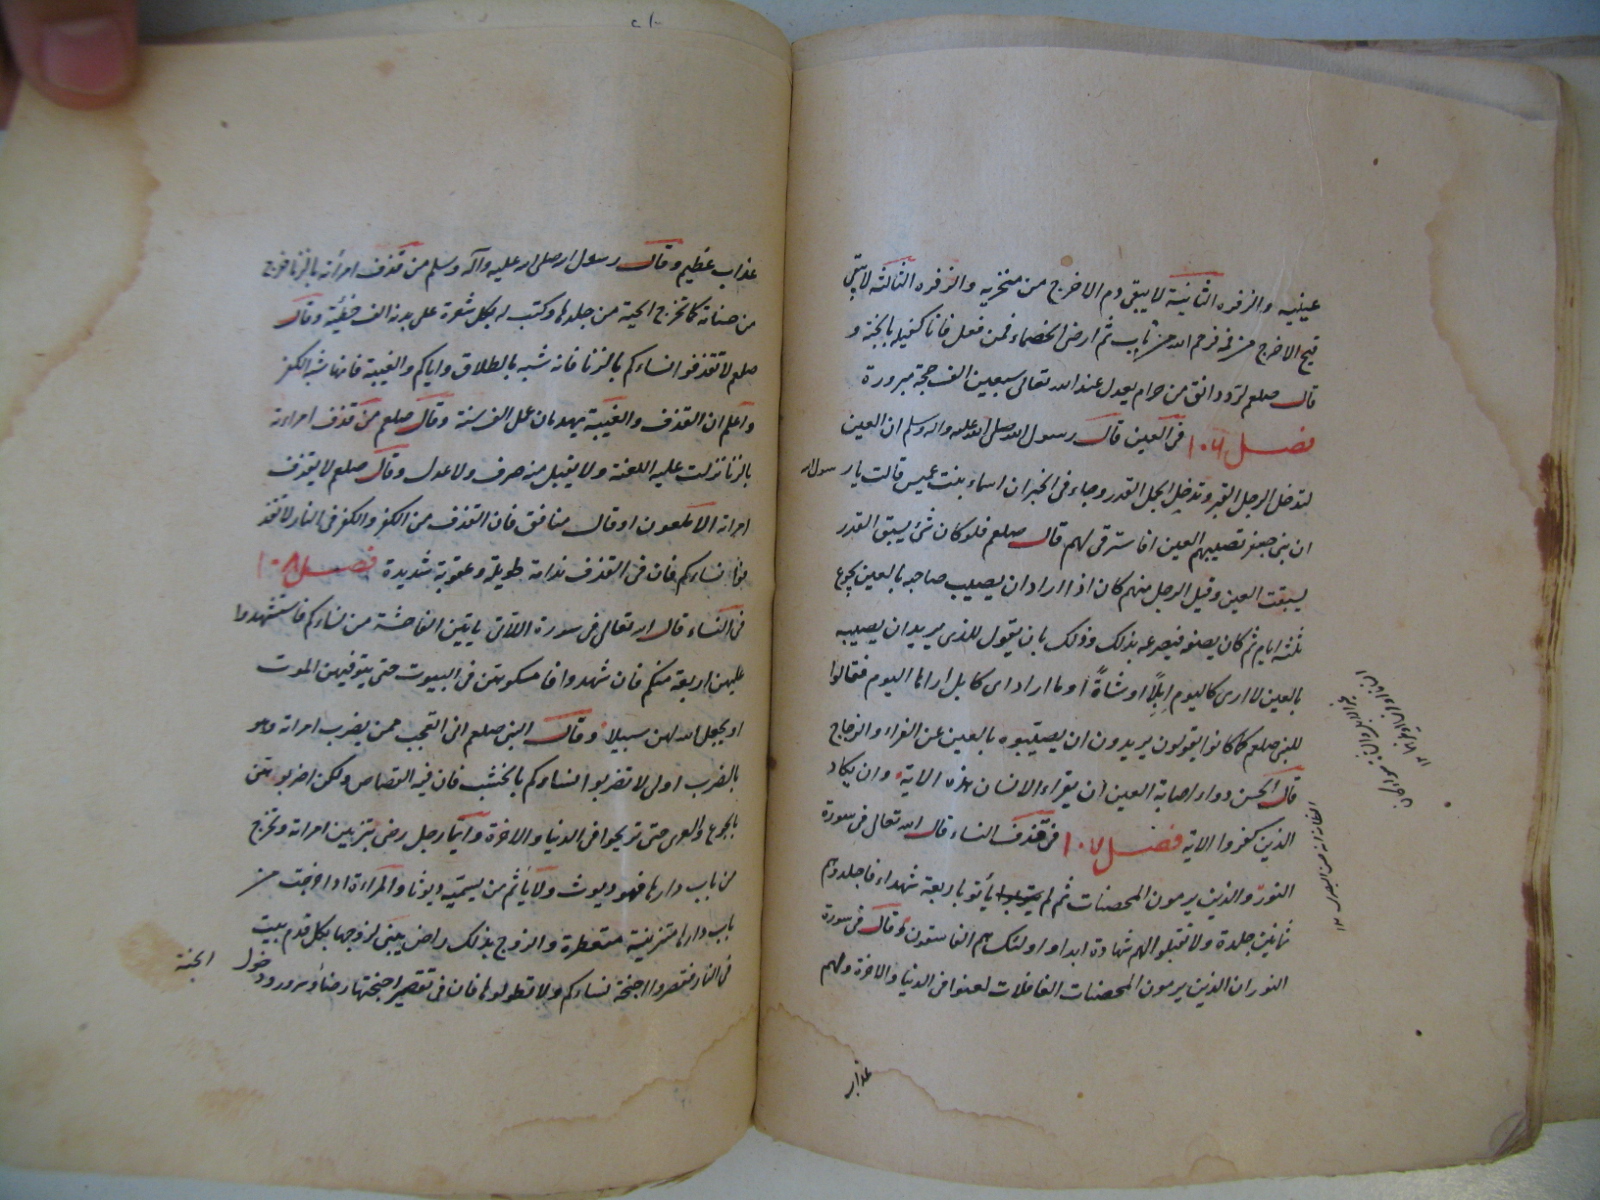 عينيه والزفره الثانية لا يبقى دم الا خرج من منخريه والزفره الثالثه لا يبقى
قيح الا خرج من فرحم الله من تاب ثم ارضى الخصماء فمن فعل فانا كفيله بالجنة و
قال صلعم لرد دانق من حرام يعدل عند الله تعالى سبعين الف حجة مبرورة
فصل ١٠٦ فى العين قال رسول الله صلى الله عليه واله وسلم ان العين
لتدخل الرجل القبر وتدخل الجمل القدر وجاء فى الخبر ان اسماء بنت عميس قالت يا رسول الله
ان بنى جعفر تصيبهم العين افاسترقى لهم قال صلعم فلو كان شئ يسبق القدر
لسبقت العين وقيل الرجل منهم كان اذا اراد ان يصيب صاحبه بالعين يجوع
ثلثه ايام ثم كان يصفه فيصرعه بذلك وذلك بان يقول للذى يريد ان يصيبه
بالعين لا ارى كاليوم ابلًا او شاةً او ما اراد اى كابل اراها اليوم فقالوا
للنبى صلعم كما كانوا يقولون يريدون ان يصيبوه بالعين عن الفراء والزجاج
قال الحسن دواء اصابة العين ان يقراء الانسان هذه الاية وان يكاد
الذين كفروا الاية فصل ١٠٧ فى قذف النساء قال الله تعالى فى سورة
النور والذين يرمون المحصنات ثم لم يأتوا باربعة شهداء فاجلدوهم
ثمانين جلدة ولا تقبلوا لهم شهادة ابدا واولئك هم الفاسقون وقال فى سورة
النور ان الذين يرمون المحصنات الغافلات لعنوا فى الدنيا والاخرة ولهم
عذاب
عذاب عظيم وقال رسول الله صلى الله عليه وآله وسلم من قذف امرأته بالزنا خرج
من حسناته كما تخرج الحية من جلدها وكتب له بكل شعرة على بدنه الف خطيئة وقال
صلعم لا تقذفوا نساءكم بالزنا فانه شبه بالطلاق واياكم والغيبة فانها شبه الكفر
واعلم ان القذف والغيبة يهدمان عمل الف سنة وقال صلعم من قذف امراءته
بالزنا نزلت عليه اللعنة ولا يقبل منه صرف ولا عدل وقال صلعم لا يقذف
امراته الا ملعون او قال منافق فان القذف من الكفر والكفر فى النار لا تقذ
فوا نساءكم فان فى القذف ندامة طويلة وعقوبة شديدة فصل ١٠٨
فى النساء قال الله تعالى فى سورة اللاتى ياتين الفاحشة من نساءكم فاستشهدوا
عليهن اربعة منكم فان شهدوا فامسكوهن فى البيوت حتى يتوفيهن الموت
او يجعل الله لهن سبيلا وقال النبى صلعم انى اتعجب ممن يضرب امراته وهو
بالضرب اولى لا تضربوا نساءكم بالخشب فان فيه القصاص ولكن اضربوهن
بالجوع والعرى حتى تريحوا فى الدنيا والاخرة وايما رجل رضى بتزيين امراته وتخرج
من باب دارها فهو ديوث ولا يأثم من يسميه ديوثا والمراءة اذا خرجت من
باب دارها متزينة متعطرة والزوج بذلك راض يبنى لزوجها بكل قدم بيت
فى النار فقصروا اجنحة نساءكم ولا تطولوها فان فى تقصير اجنحتها رضاءً وسرورا ودخول الجنة